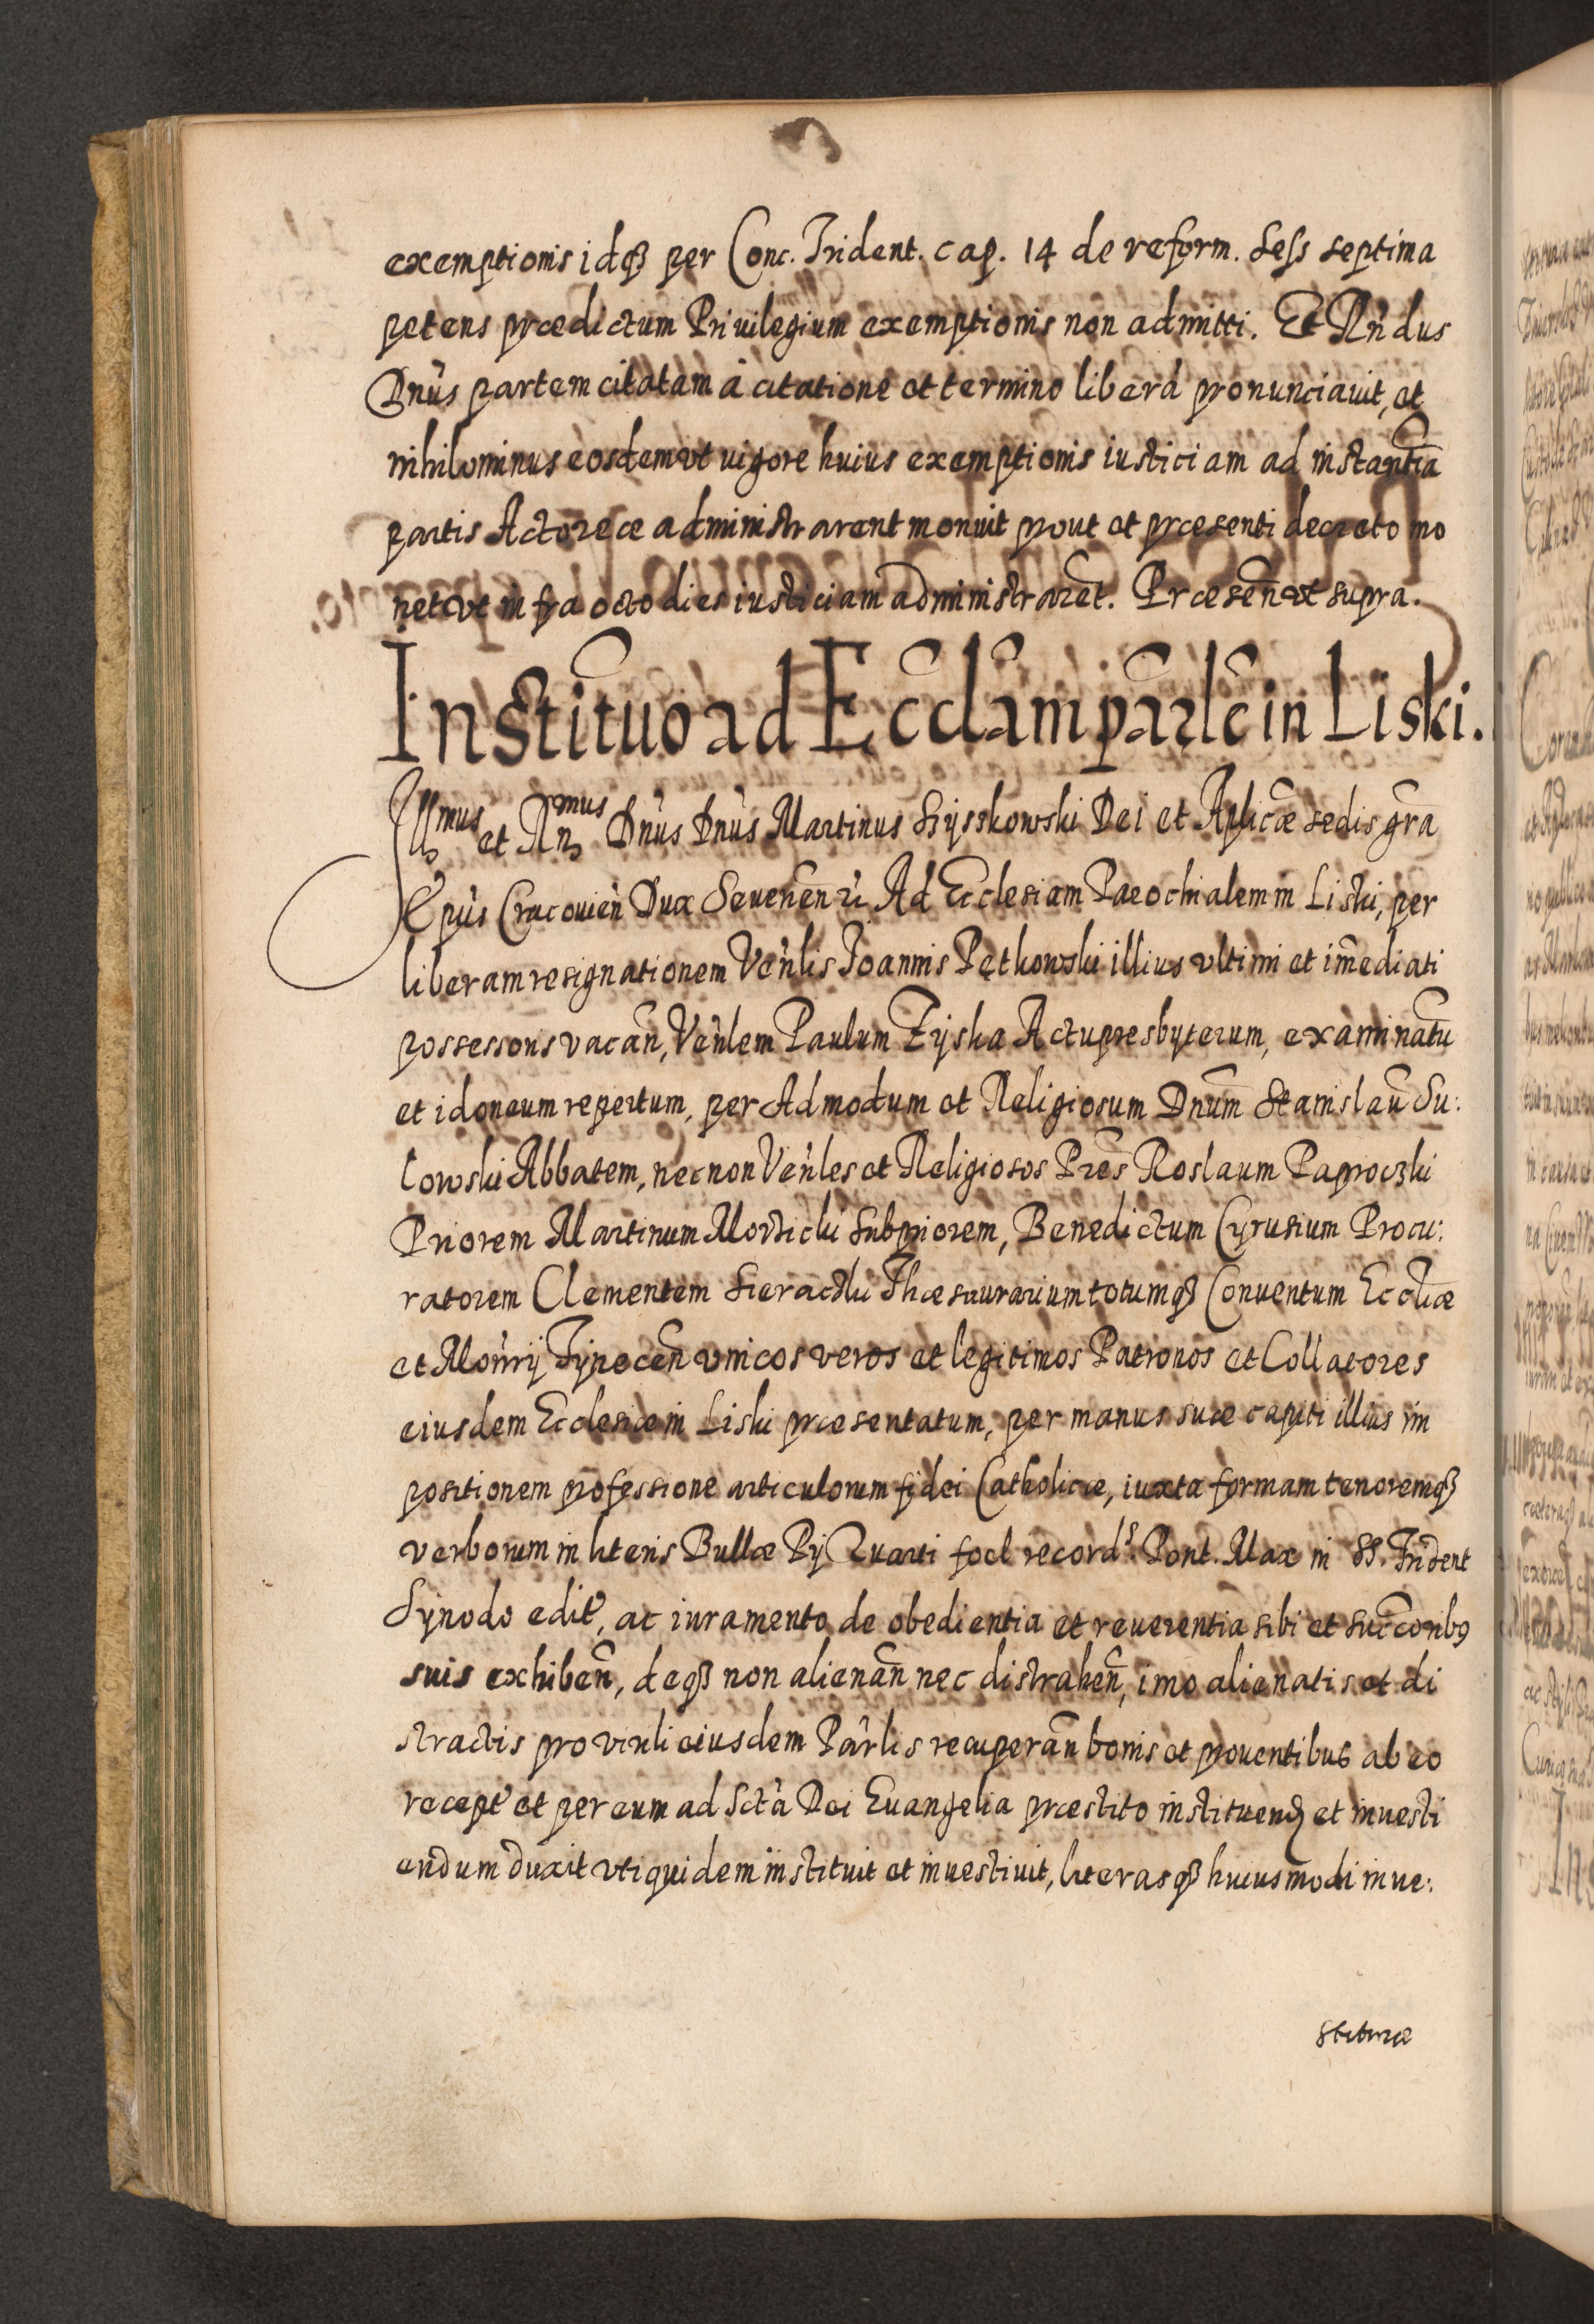 exemptionis idqꝫ per Conc. Trident. cap. 14 de reform. Sess septima
petens prædictum Priuilegium exemptionis non admitti. Et Rñdus
Dnũs partem citatam à citatione et termino liberã pronunciauit, et
nihilominus eosdem vt uigore huius exemptionis iusticiam ad instantiã
partis Actoreæ administrarent monuit prout et præsenti decreto mo
net vt infra octo dies iusticiam administrarẽt. Præsen̄ vt supra.
Institutio ad Eccl̃am par̃lẽ in Liski.
Illmus et Rnmus Dnũs Dnũs Martinus Szyszkowski Dei et Apl̃icæ sedis gr̃a
Epũs Cracouien̄ Dux Seuerien̄ Ad Ecclesiam Parochialem in Liski, per
liberam resignationem Ven̄lis Joannis Pętkowski illius vltimi et im̃ediati
possessoris vacan̄, Ven̄lem Paulum Zyska Actupresbyterum, examinatũ
et idoneum repertum, per Admodum et Religiosum Dnũm Stanislaũ Su:
lowski Abbatem, necnon Ven̄les et Religiosos Pr̃es Roslaum Paproczki
Priorem Martinum Subpriorem, Benedictum Cyrusium Procu:
ratorem Clementem Thæsaurarium totumqꝫ Conuentum Eccl̃iæ
et Mon̄rij Tynecen̄ vnicos veros et legitimos Patronos et Collatores
eiusdem Ecclesiæ in Liski præsentatum, per manus suæ capiti illius im
positionem professione articulorum fidei Catholicæ, iuxta formam tenoremqꝫ
verborum in literis Bullæ Pij Quarti fœl record: Pont. Max in SS. Trident
Synodo edit, ac iuramento de obedientia et reuerentia sibi et succ̃oribꝯ
suis exhiben̄, deqꝫ non alienan̄ nec distrahen̄, imo alienatis et di
stractis pro virili eiusdem Par̃lis recuperan̄ bonis et prouentibus ab eo
recept et per eum ad Sctã Dei Euangelia præstito instituend et inuesti
endum duxit vti quidem instituit et inuestiuit, literasqꝫ huiusmodi inue:
stituræ